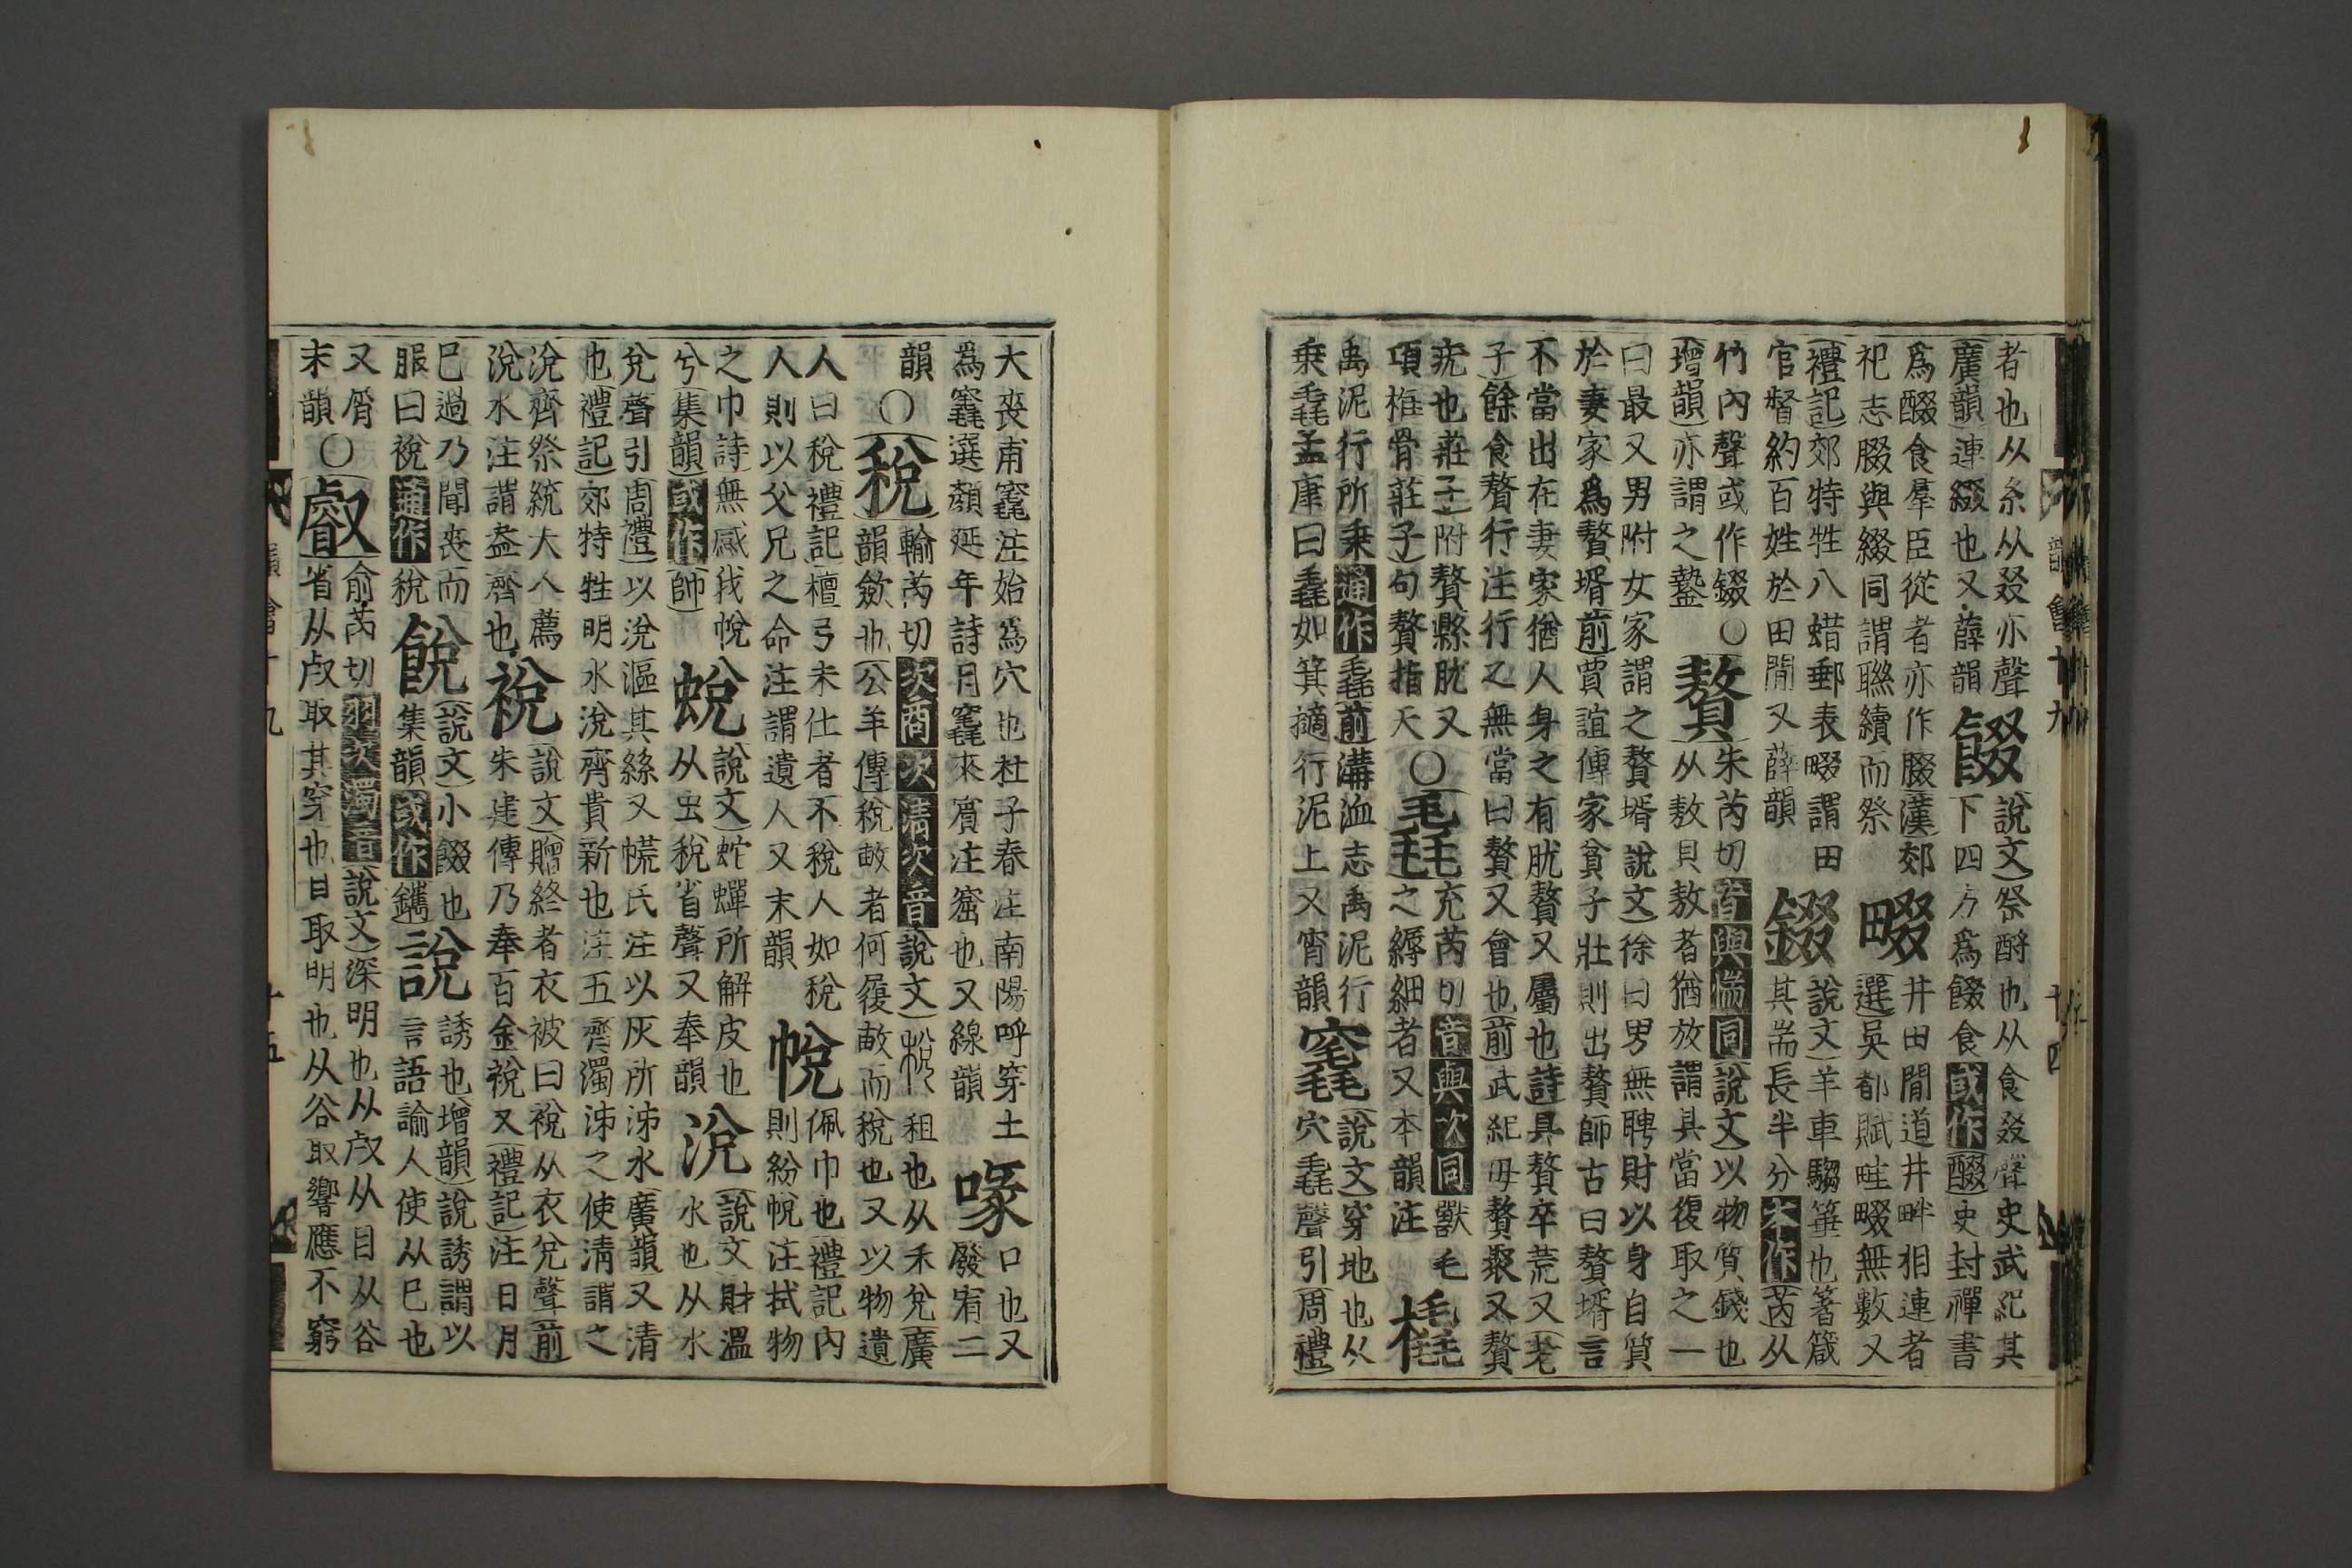 者也从糸从叕亦聲
廣韻連綴也又薛韻
餟
說文祭酹也从食叕聲史武紀其
下四方爲餟食或作醊史封禪書
爲醊食羣臣從者亦作腏漢郊
祀志腏與綴同謂聯續而祭
畷
井田閒道井畔相連者
選吳都賦畦畷無數又
禮記郊特牲八蜡郵表畷謂田
官督約百姓於田閒又薛韻
錣
說文羊車騶箠也箸箴
其耑長半分本作笍从
竹內聲或作錣○
增韻亦謂之蟄
贅
朱芮切音與惴同說文以物質錢也
从敖貝敖者猶放謂貝當復取之一
曰最又男附女家謂之贅壻說文徐曰男無聘財以身自質
於妻家爲贅壻前賈誼傳家貧子壯則出贅師古曰贅壻言
不當出在妻家猶人身之有肬贅又屬也詩具贅卒荒又老
子餘食贅行注行之無當曰贅又會也前武紀毋贅聚又贅
疣也莊子附贅縣肬又
項椎骨莊子句贅指天
○毳
充芮切音與次同獸毛
之縟細者又本韻注
橇
禹泥行所乗通作毳前溝洫志禹泥行
乗毳孟康曰毳如箕擿行泥上又宵韻
竁
說文穿地也从
穴毳聲引周禮
大喪甫竁注始爲穴也杜子春注南陽呼穿土
爲竁選顏延年詩月竁來賓注窟也又線韻
喙
口也又
廢宥二
韻○
稅
輸芮切次商次清次音說文稅租也从禾兌聲廣
韻斂也公羊傳稅畝者何履畝而稅也又以物遺
人曰稅禮記檀弓未仕者不稅人如稅
人則以父兄之命注謂遺人又末韻
帨
佩巾也禮記內
則紛帨注拭物
之巾詩無感我帨
兮集韻或作帥
蛻
說文蛇蟬所解皮也
从虫稅省聲又奉韻
涗
說文財溫
水也从水
兌聲引周禮以涗漚其絲又㡛氏注以灰所泲水廣韻又清
也禮記郊特牲明水涗齊貴新也注五齊濁泲之使清謂之
涗齊祭統大人薦
涗水注謂盎齊也
裞
說文贈終者衣被曰裞从衣兌聲前
朱建傳乃奉百金裞又禮記注日月
巳過乃聞喪而
服曰裞通作稅
䬽
說文小餟也
集韻或作䥴
說
誘也增韻說誘謂以
言語諭人使从巳也
又屑
末韻○
叡
俞芮切羽次濁音說文深明也从𣦼从目从谷
省从𣦼取其穿也目取明也从谷取響應不窮